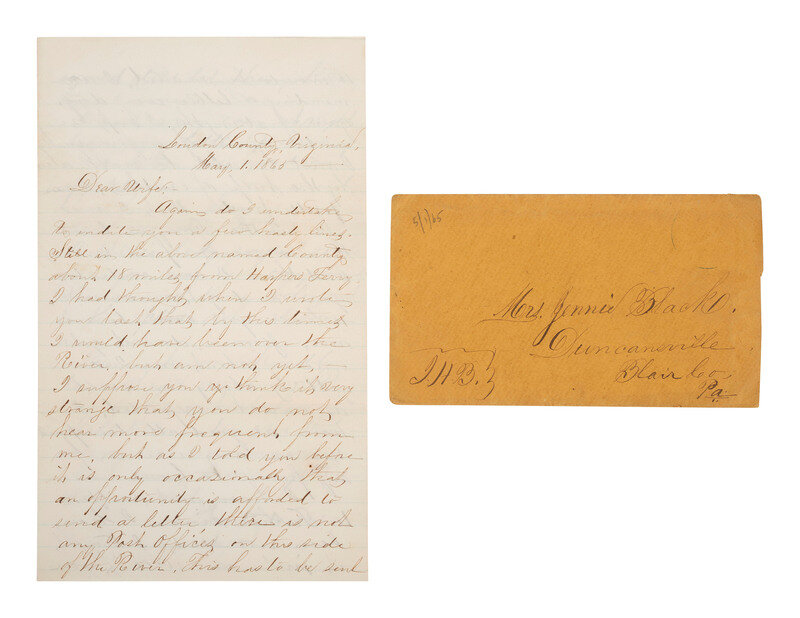 Loudon County, Virginia,
May, 1. 1865
Dear Wife,
Again do I undertake
to indite you a few hasty lines.
Still in the above named County
about 18 miles from Harpers Ferry
I had thought when I wrote
you last that by this time
I would have been over the
River, but am not yet.
I suppose you think it very
strange that you do not
hear more frequent from
me, but as I told you before
it is only occasionally that
an opportunity is afforded to
send a letter there is not
any Post Offices on this side
of the River. This has to be sent
5/1/65
Mrs. Jennie Blacke.
Duncansville
Blair Co
Pa
J H B.